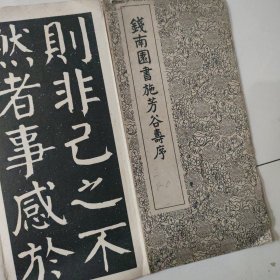 錢南園書施芳谷壽序
則非己之不
然者事感於